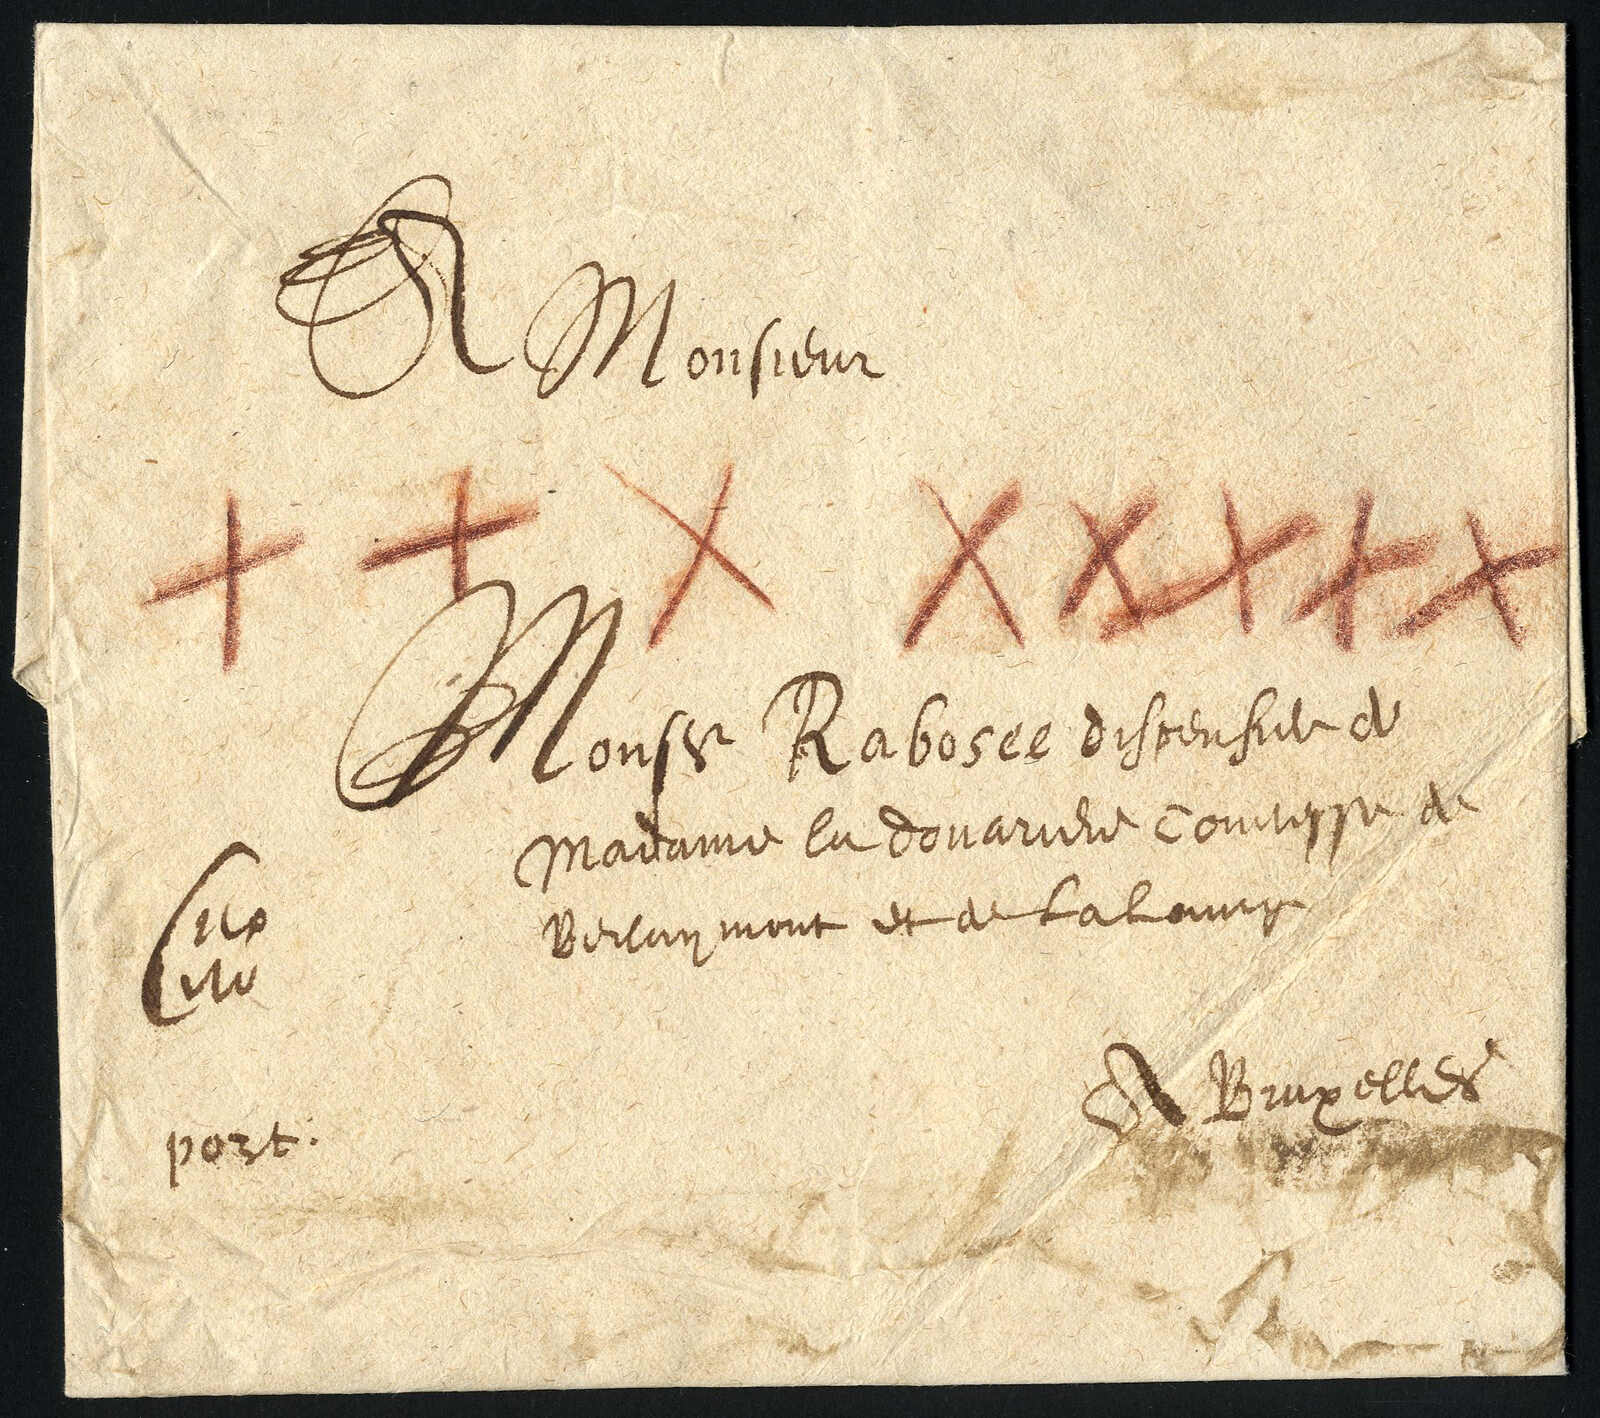 A Monsieur
+ + X X X X X X
Monsr Rabosee dispensier de
Madame la douariere Comtesse de
Berlaymont et de Lalaing
Cito
Cito
A Bruxelles
port.